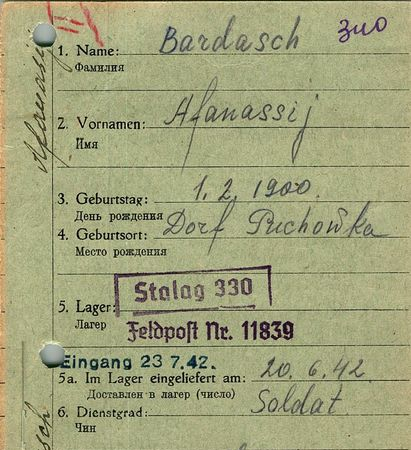 1. Name: Bardasch
Фамилия
2. Vornamen: Afanassij
Имя
3. Geburtstag: 1.2.1900.
День рождения
4. Geburtsort: Dorf Puchowka
Место рождения
Stalag 330
5. Lager:
Лагерь
Feldpost Nr. 11839
Eingang 23 7. 42.
5a. Im Lager eingeliefert am: 20.6.42.
Доставлен в лагерь (число)
6. Dienstgrad: Soldat
Чин
Afanassij